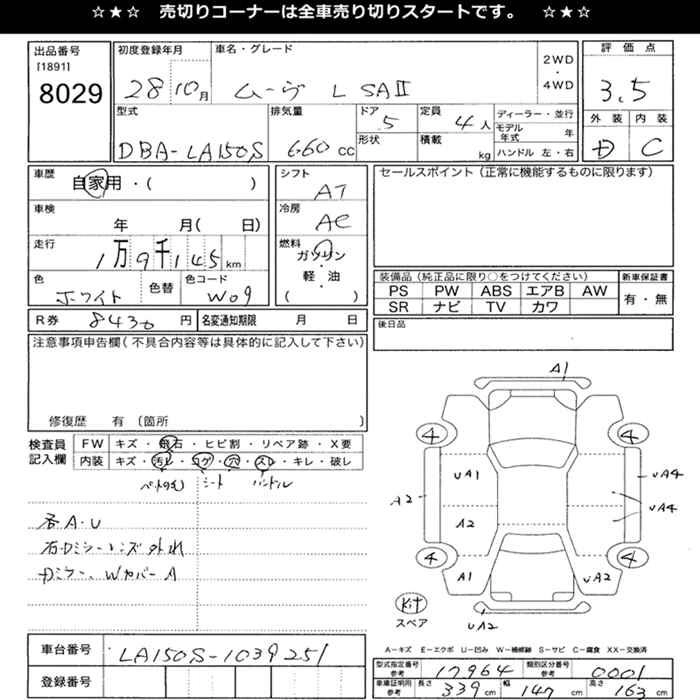 ☆★☆ 売切りコーナーは全車売り切りスタートです。 ☆★☆
出品番号
[1891]
8029
初度登録年月
28 10月
車名・グレード
ムーヴ L SAⅡ
2WD
・
4WD
評価点
3.5
外装 内装
D C
型式
DBA-LA150S
排気量
660 cc
ドア
5
形状
定員
4 人
積載
kg
ディーラー・並行
モデル年式 年
ハンドル 左・右
車歴
自家用・( )
車検
年 月( 日)
走行
1万9千145km
色
ホワイト
色替
色コード
W09
シフト
AT
冷房
AC
燃料
ガソリン
・
軽・油
( )
セールスポイント(正常に機能するものに限ります)
装備品(純正品に限り○をつけてください)
PS PW ABS エアB AW
SR ナビ TV カワ
新車保証書
有・無
R券 8430 円 名変通知期限 月 日
後日品
注意事項申告欄(不具合内容等は具体的に記入して下さい)
修復歴 有〔箇所 〕
検査員
記入欄
FW キズ・飛石・ヒビ割・リペア跡・X要
内装 キズ・汚レ・コゲ・穴・スレ・キレ・破レ
ペットの毛 シート ハンドル
各A・U
右Dミラーレンズ外れ
Dミラー、WカバーA
A1
4 4
UA1 UA4
A2 A2 UA4
4 4
A1 UA2
Kit
スペア
UA2
A-キズ E-エクボ U-凹み W-補修跡 S-サビ C-腐食 XX-交換済
車台番号 LA150S-1039251
登録番号
型式指定番号
参考
17964
類別区分番号
参考
0001
車庫証明用
参考
長さ 339 cm 幅 147 cm 高さ 163 cm